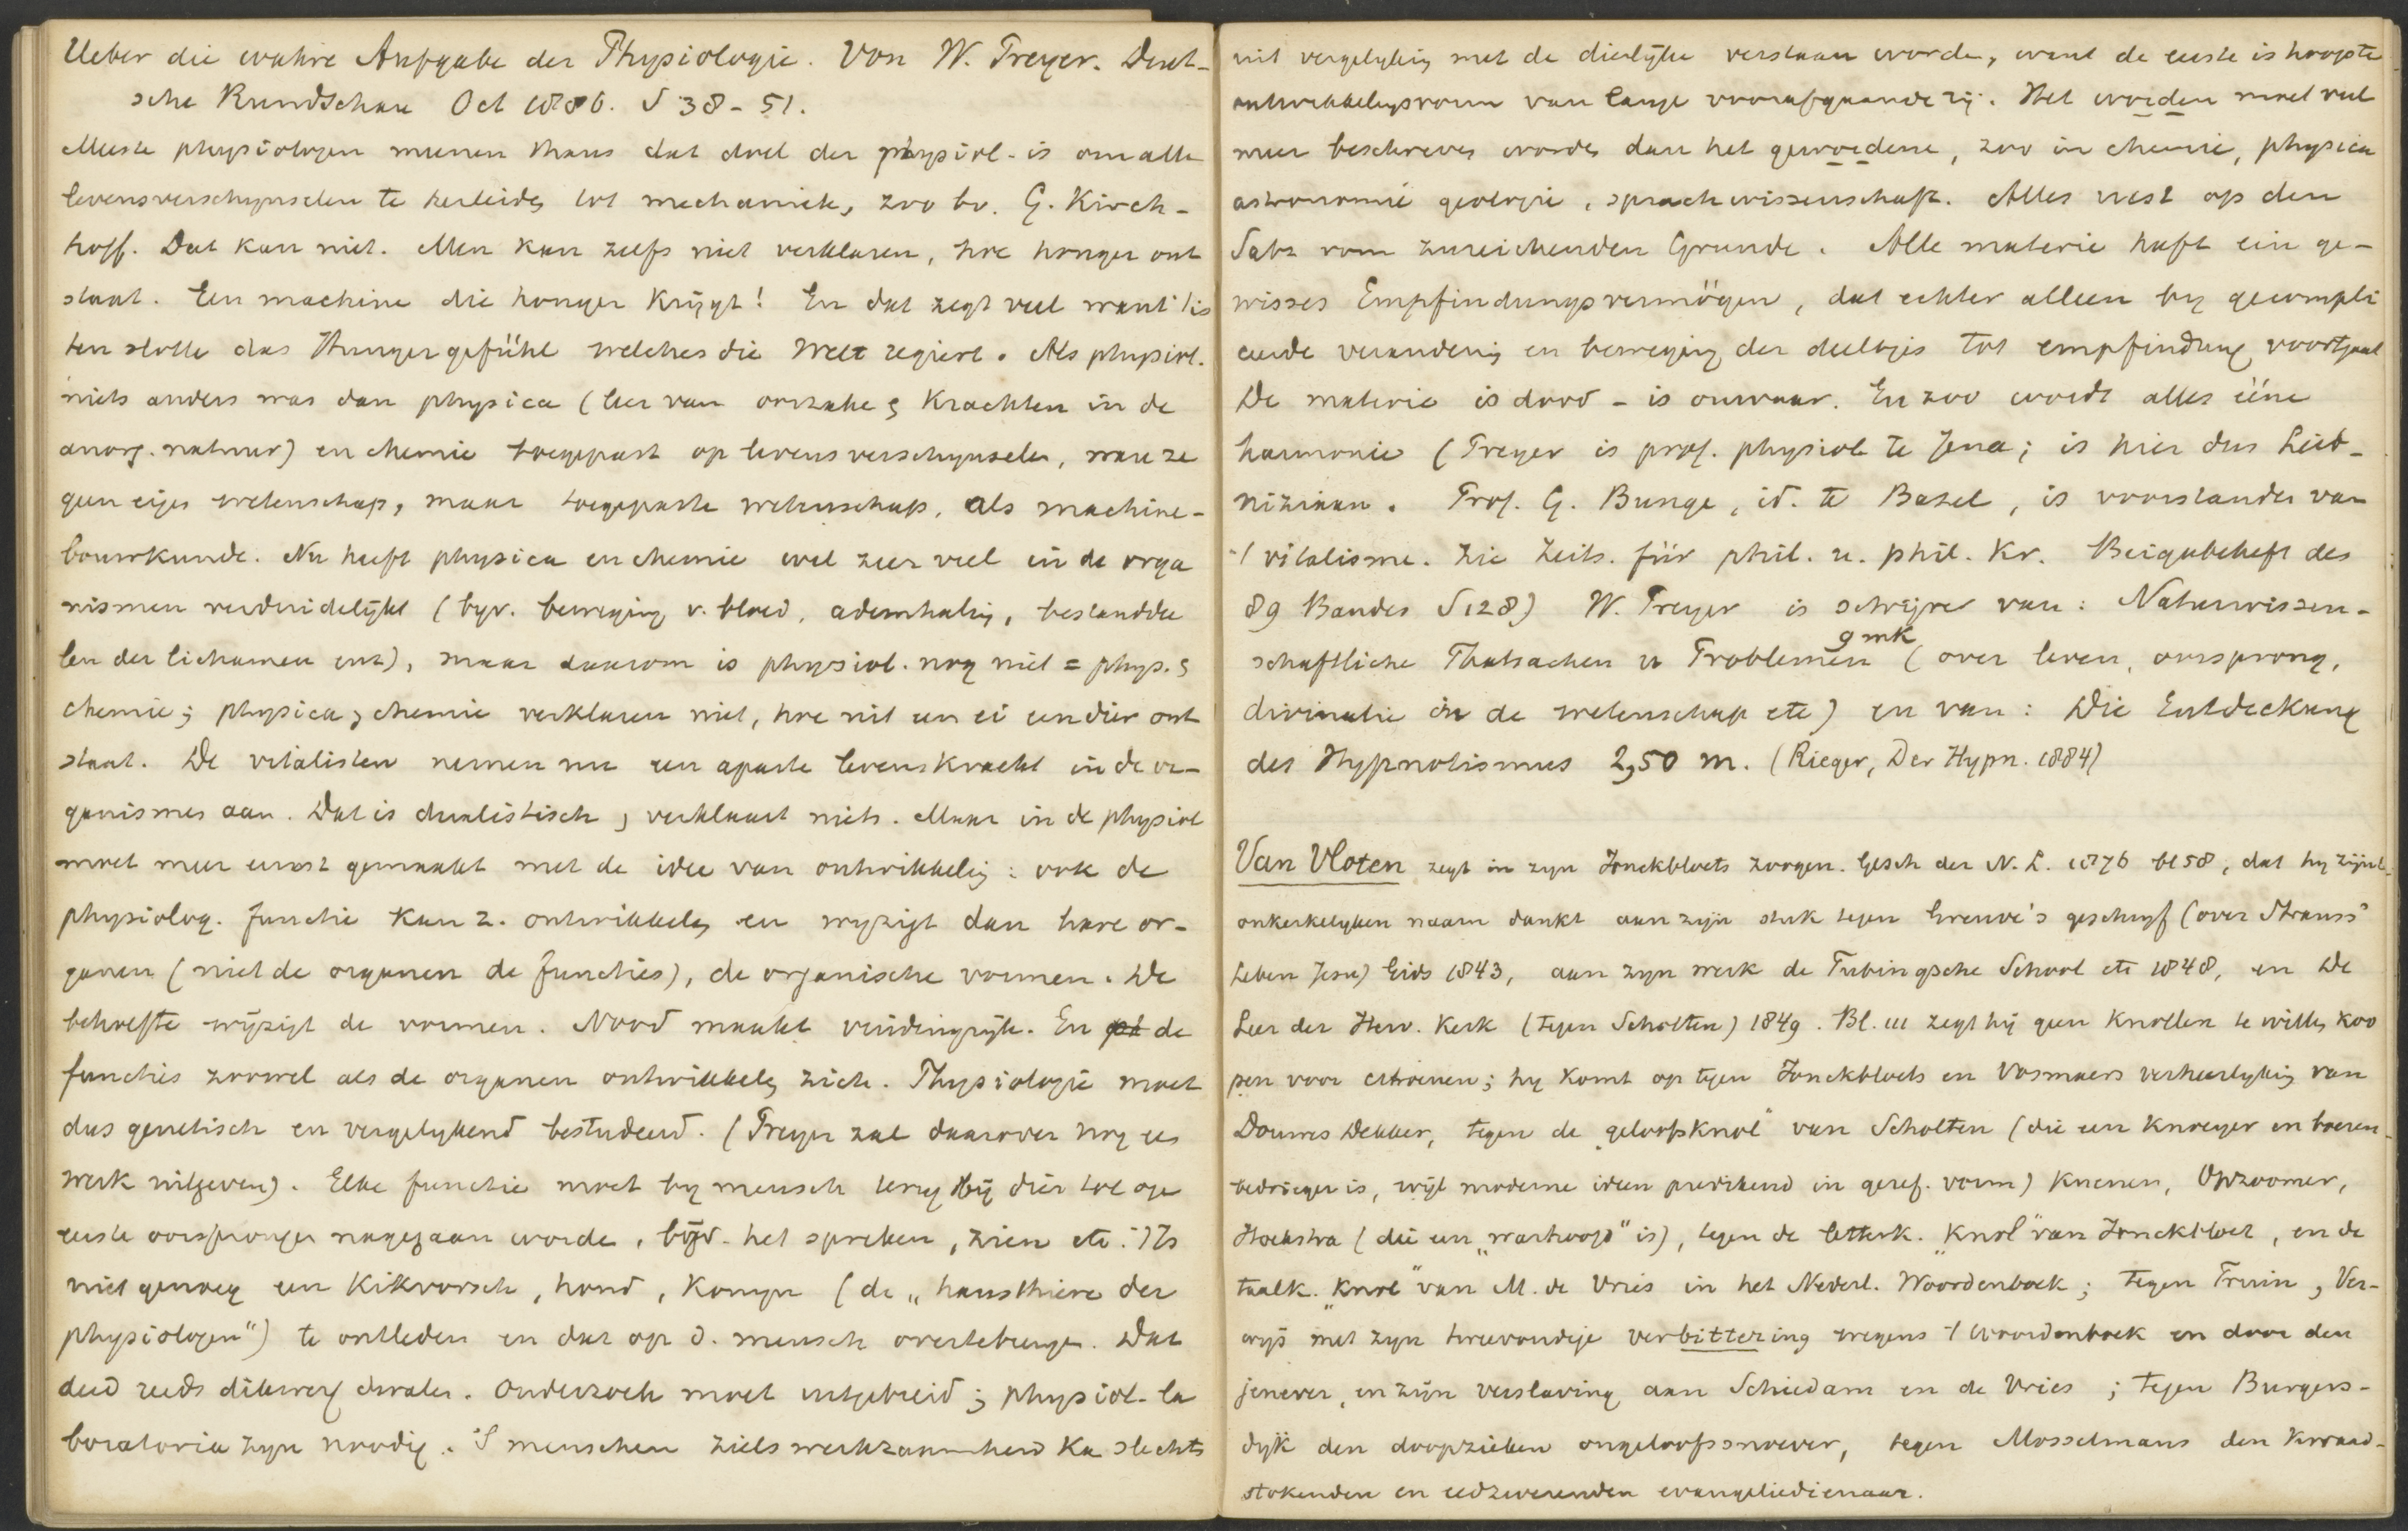 Ueber die wahre Aufgabe der Physiologie. Von W. Preyer. Deut-
sche Rundschau Oct 1886. S 38-51.
Meeste physiologen meenen thans dat doel der physiol. is om alle
levensverschynselen te herleiden tot mechaniek, zoo bv. G. Kirch-
hoff. Dat kan niet. Men kan zelfs niet verklaren, hoe honger ont
staat. Een machine die honger krijgt! En dat zegt veel want 't is
ten slotte das Hungergefühl welches die Welt regiert. Als physiol.
niets anders was dan physica (leer van oorzaken & krachten in de
anorg. natuur) en chemie toegepast op levensverschynselen, ware ze
geen eigen wetenschap, maar toegepaste wetenschap, als machine-
bouwkunde. Nu heeft physica en chemie wel zeer veel in de orga
nismen verduidelijkt (byv. beweging v. bloed, ademhaling, bestanddee
len der lichamen enz), maar daarom is physiol. nog niet = phys. &
chemie; physica & chemie verklaren niet, hoe uit een ei een dier ont
staat. De vitalisten nemen nu een aparte levenskracht in de or-
ganismes aan. Dat is dualistisch, verklaart niets. Maar in de physiol
moet meer ernst gemaakt met de idee van ontwikkeling: ook de
physiolog. functie kan z. ontwikkelen en wyzigt dan hare or-
ganen (niet de organen de functies), de organische vormen. De
behoefte wijzigt de vormen. Nood maakt vindingrijk. En de
functies zoowel als de organen ontwikkelen zich. Physiologie moet
dus genetisch en vergelykend bestudeerd. (Preyer zal daarover nog een
werk uitgeven). Elke functie moet by mensch en by dier tot op
eerste oorsprongen nagegaan worden, bijv. het spreken, zien etc. 't Is
niet genoeg een kikvorsch, hond, konyn (de „hausthiere der
physiologen") te ontleden en dat op d. mensch overtebrengen. Dat
deed reeds dikwerf dwalen. Onderzoek moet uitgebreid; physiol. la
boratoria zyn noodig. 'S menschen zielswerkzaamheid kan slechts
uit vergelyking met de dierlijke verstaan worden, want de eerste is hoogste
ontwikkelingsvorm van lange voorafgaande rij. Het worden moet veel
meer beschreven worden dan het gewordene, zoo in chemie, physica
astronomie geologie, sprachwissenschaft. Alles rust op den
Satz vom zureichenden Grunde. Alle materie heeft ein ge-
wisses Empfindungsvermögen, dat echter alleen by gecompli
ceerde verandering en beweging der deeltjes tot empfindung voortgaat
De materie is dood - is onwaar. En zoo wordt alles ééne
harmonie (Preyer is prof. physiol te Jena; is hier dus Leib-
niziaan. Prof. G. Bunge, id. te Bazel, is voorstander van
't vitalisme. Zie Zeits. für phil. u. phil. Kr. Beigabeheft des
89 Bandes S 128) W. Preyer is schrijver van: Naturwissen-
schaftliche Thatsachen u Problemen 9 mk (over leven, oorsprong,
divinatie in de wetenschap etc) en van: Die Entdeckung
des Hypnotismus 2,50 m. (Rieger, Der Hypn. 1884)
Van Vloten zegt in zyn Jonckbloets zoogen. Gesch der N. L. 1876 bl 58, dat hy zijn
onkerkelyken naam dankt aan zijn stuk tegen Greuve's geschryf (over Strauss'
Leben Jesu) Gids 1843, aan zyn werk de Tubingsche School etc 1848, en De
Leer der Herv. Kerk (tegen Scholten) 1849. Bl. III zegt hij geen knollen te willen koo
pen voor citroenen; hy komt op tegen Jonckbloets en Vosmaers verheerlyking van
Douwes Dekker, tegen de „geloofsknol" van Scholten (die een knoeyer en boeren-
bedrieger is, wijl moderne ideen predikend in geref. vorm) Kuenen, Opzoomer,
Hoekstra (die een „warhoofd" is), tegen de letterk. „knol" van Jonckbloet, en de
taalk. „knol" van M. de Vries in het Nederl. Woordenboek; tegen Fruin, Ver-
wijs met zyn tweevoudige verbittering wegens 't Woordenboek en door den
jenever, en zijn verslaving aan Schiedam en de Vries; tegen Burgers-
dijk den doopzieken ongeloofssnoever, tegen Mosselmans den kwaad-
stokenden en eedzwerenden evangeliedienaar.